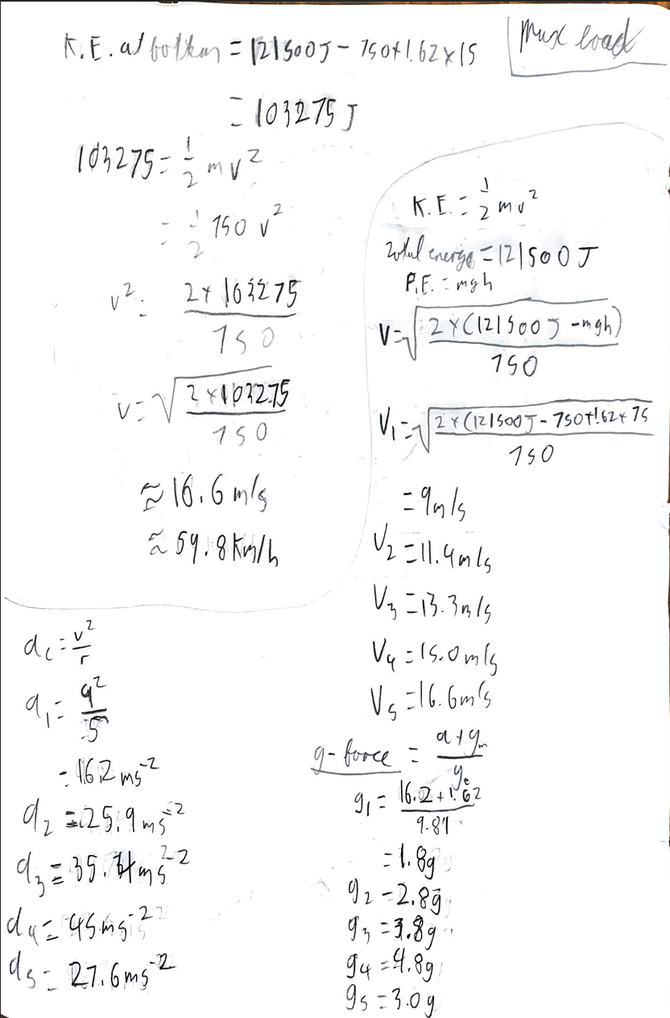 K.E. at bottom = 121500J - 750×1.62×15
Max load
= 103275 J
103275 = 1/2 mv²
= 1/2 750 v²
v² = 2×103275 / 750
v = √(2×103275 / 750)
≈ 16.6 m/s
≈ 59.8 km/h
K.E. = 1/2 mv²
Total energy = 121500 J
P.E. = mgh
V = √(2×(121500J - mgh) / 750)
V₁ = √(2×(121500J - 750×1.62×75 / 750)
= 9m/s
V₂ = 11.4m/s
V₃ = 13.3m/s
V₄ = 15.0m/s
V₅ = 16.6m/s
a꜀ = v²/r
a₁ = 9²/5
= 16.2 ms⁻²
a₂ = 25.9 ms⁻²
a₃ = 35.3 ms⁻²
a₄ = 45 ms⁻²
a₅ = 27.6 ms⁻²
g-force = a+gₘ / gₑ
g₁ = 16.2+1.62 / 9.81
= 1.8g
g₂ = 2.8g
g₃ = 3.8g
g₄ = 4.8g
g₅ = 3.0g